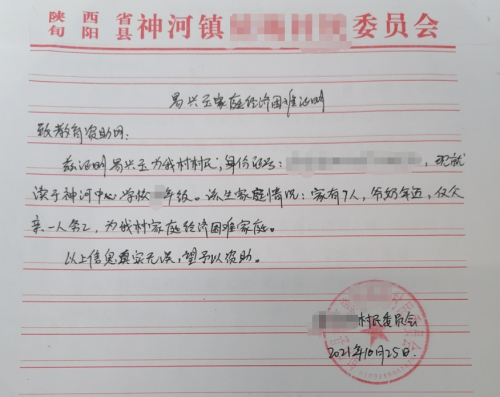 陕西省
旬阳县
神河镇 委员会
易兴 家庭经济困难证明
致教育资助网：
兹证明易兴 为我村村民，身份证号： ，现就
读于神河中心学校 年级。该生家庭情况：家有7人，爷奶年迈，仅父
亲一人务工，为我村家庭经济困难家庭。
以上信息真实无误，望予以资助。
村民委员会
2021年10月25日.